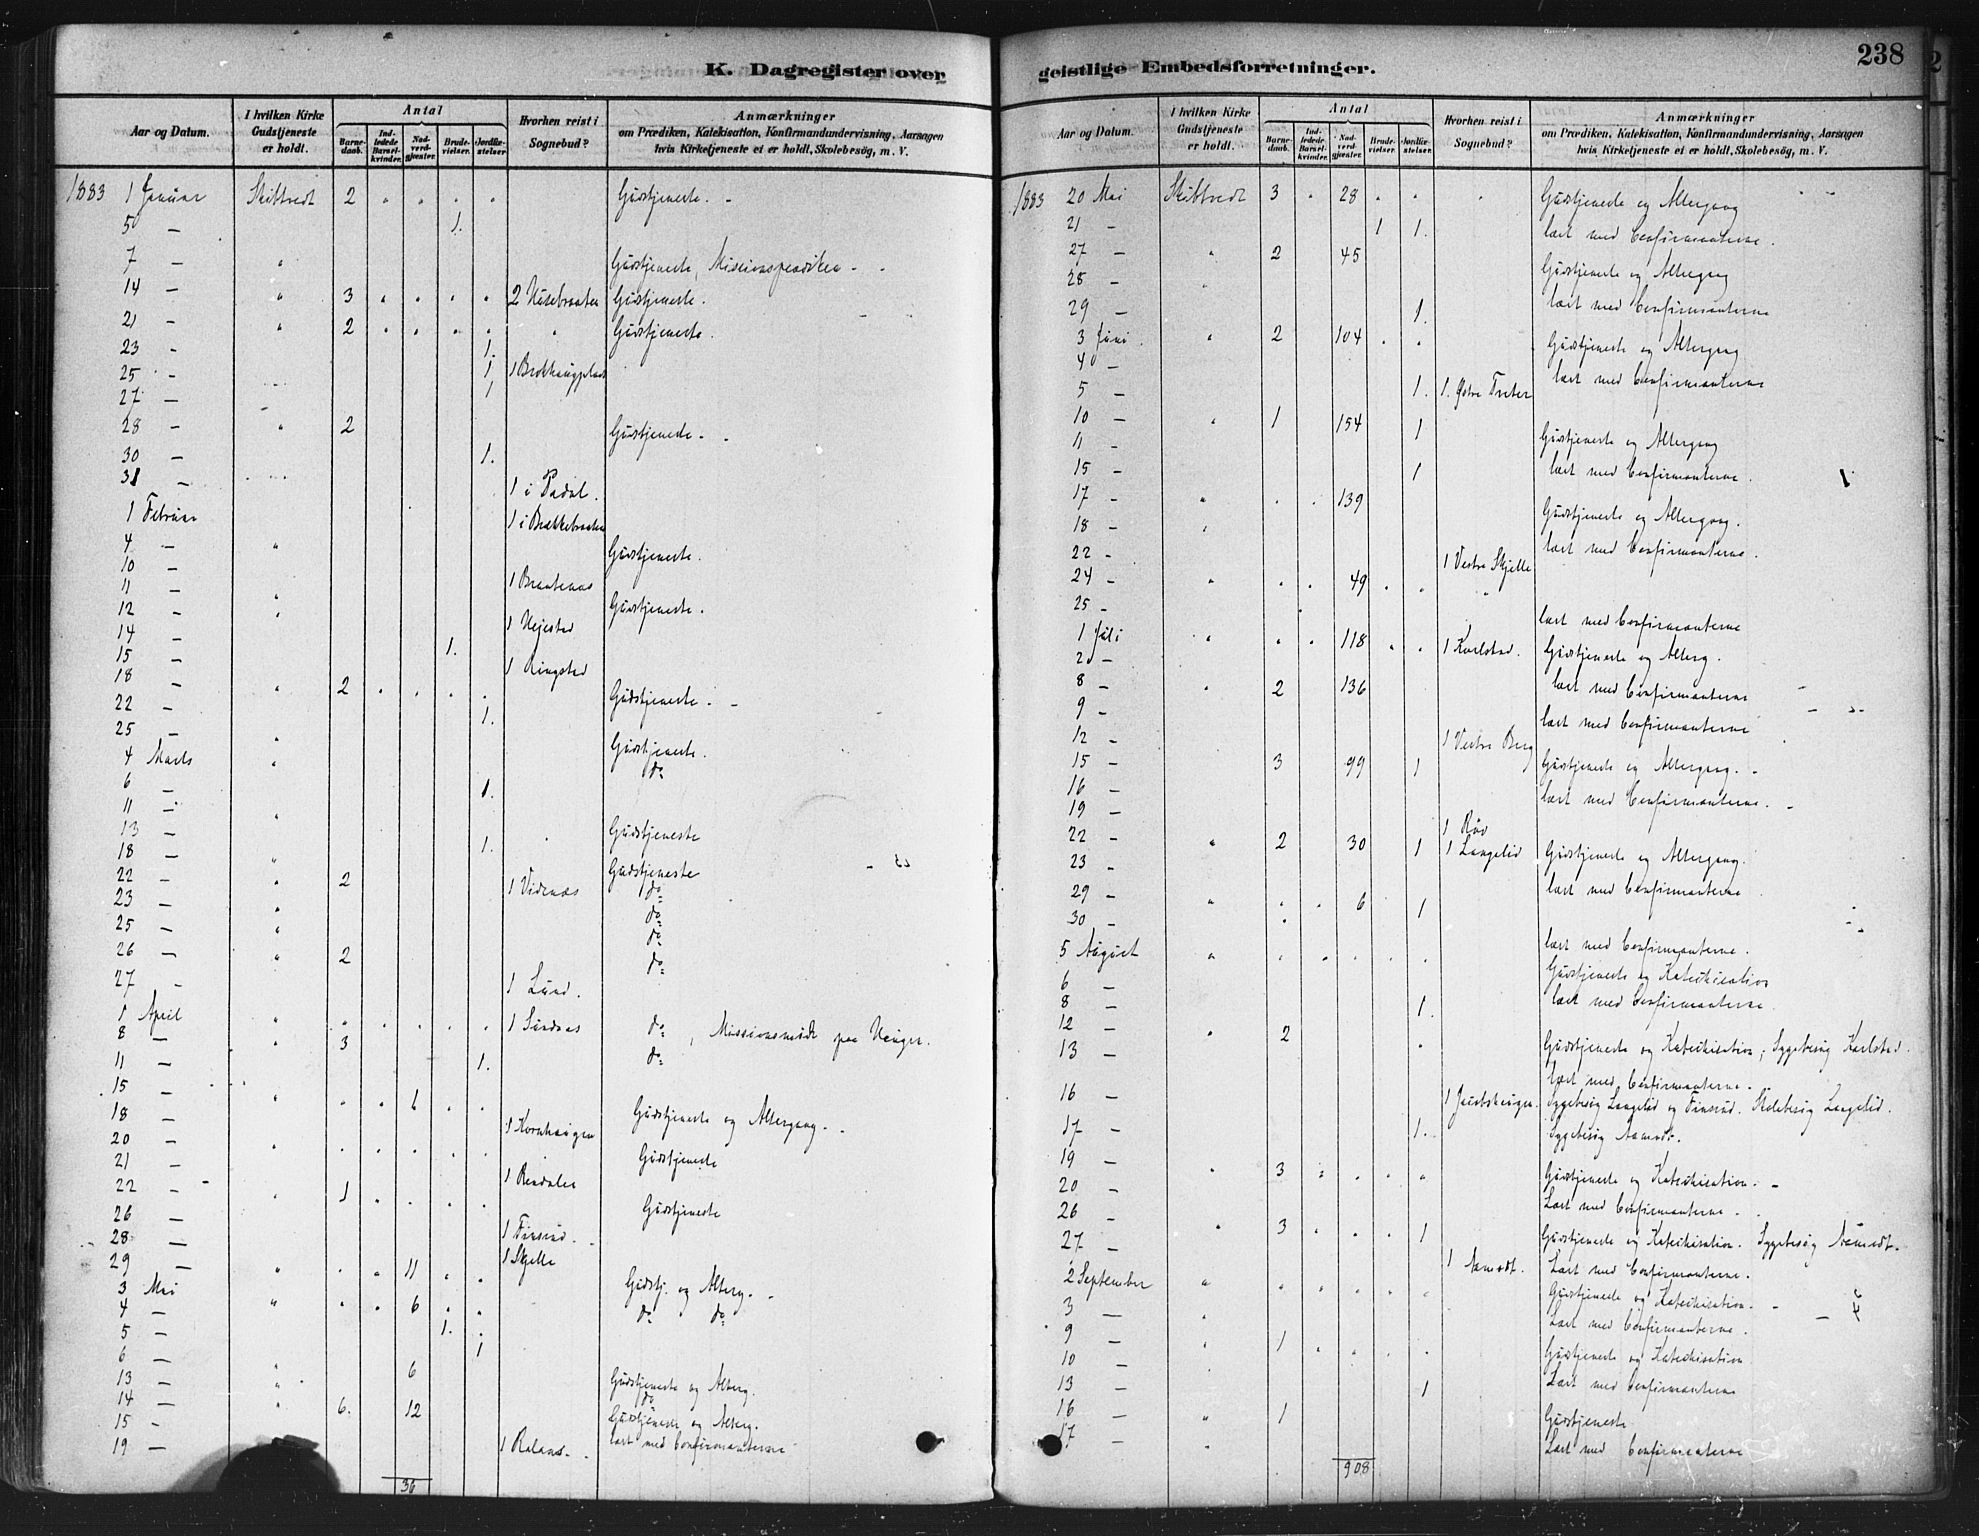 K. Dagregister over
Aar og Datum. I hvilken Kirke Gudstjeneste er holdt. Antal Barnedaab. Indledede Barselkvinder. Nadverdgjester. Brudevielser. Jordfæstelser. Hvorhen reist i Sognebud? Anmærkninger om Prædiken, Katekisation, Konfirmandundervisning, Aarsagen hvis Kirketjeneste ei er holdt, Skolebesøg, m. V.
1883 1 Januar Skibtvedt 2 " " " " Gudstjeneste.
5 — 1.
7 — " Gudstjeneste, Missionspræediken
14 — " 3 " " " " 2 Husebraaten Gudstjeneste.
21 — " 2 " " " " " Gudstjeneste.
23 - 1.
25 - 1 1 Brækhaugplads
27 — 1
28 - " 2 Gudstjeneste.
30 — 1.
31 — 1 i Padal.
1 Februar 1 i Brækkebraaten
4 — " Gudstjeneste.
10 —
11 — " 1 Brantenas
12 — " Gudstjeneste.
14 — 1 Hejestad
15 — 1.
18 — " 2 " " " " 1 Ringstad
22 — 1. Gudstjeneste.
25 — "
4 Marts " Gudstjeneste.
6 — 1. do
11 — "
13 — 1. Gudstjeneste
18 — " Gudstjeneste
22 — " 2 1 Vidnæs do
23 — " do
25 — " do
26 — " 2 do
27 - 1 Lund.
1 April " " " " " " 1 Sundnæs do, Missionsmøde paa Hauger.
8 — " 3 do
11 — 1.
15 — " " " 1 " "
18 — Gudstjeneste og Altergang.
20 — " " " " " " 1 Kornhaugen
21 — Gudstjeneste
22 — " 1 " " " " 1 Rendalen
26 — Gudstjeneste
28 — 1 Finsrud.
29 — " " " 11 " " 1 Skjelle
3 Mai " " " 6 " " Gudstj. og Alterg.
4 — 1. do do
5 — 1
6 — " 6
13 — " Gudstjeneste og Alterg.
14 — " 6. 12 do
15 — Gudstjeneste og Alterg.
19 — læst med Confirmanterne
36
geistlige Embedsforretninger. 238
Aar og Datum. I hvilken Kirke Gudstjeneste er holdt. Antal Barnedaab. Indledede Barselkvinder. Nadverdgjester. Brudevielser. Jordfæstelser. Hvorhen reist i Sognebud? Anmærkninger om Prædiken, Katekisation, Konfirmandundervisning, Aarsagen hvis Kirketjeneste ei er holdt, Skolebesøg, m. V.
1883 20 Mai Skibtvedt 3 " 28 " " " Gudstjeneste og Altergang
21 - 1 1. læst med Confirmanterne.
27 — " 2 45 Gudstjeneste og Altergang
28 - " læst med Confirmanterne
29 — 1.
3 Juni " 2 104 " " Gudstjeneste og Altergang
4 — læst med Confirmanterne
5 — 1. 1. Østre Treter
10 — " 1 154 1 Gudstjeneste og Altergang
11 — læst med Confirmanterne.
15 — 1
17 — " " " 139 Gudstjeneste og Altergang.
18 — " læst med Confirmanterne.
22 - 1 Vestre Skjelle
24 — " " " 49 " " "
25 - læst med Confirmanterne
1 Juli " " " 118 " " 1 Karlstad. Gudstjeneste og Alterg.
2 — læst med Confirmanterne
8 — " 2 136
9 — læst med Confirmanterne
12 — 1 Vestre Berg
15 — 3 99 1 Gudstjeneste og Altergang.
16 — læst med Confirmanterne.
19 — 1 Røv
22 — " 2 30 1 1 Langelid Gudstjeneste og Altergang.
23 — læst med Confirmanterne
29 — " " " 6 1
30 — læst med Confirmanterne.
5 August " " " " " " Gudstjeneste og Katechisation
6 — læst med Confirmanterne
8 — 1.
12 — " 2 Gudstjeneste og Katechisation; Sygebesøg Karlstad.
13 — læst med Confirmanterne.
16 — 1 Jacobshaugen. Sygebesøg Langelid og Finsrud. Skolebesøg Langelid.
17 — 1. Sygebesøg Aamodt.
19 — " 3 " " " " Gudstjeneste og Katechisation.
20 — Læst med Confirmanterne.
26 — " 3 " " " 1 Gudstjeneste og Katechisation. Sygebesøg Aamodt.
27 — 1 Aamodt. Læst med Confirmanterne.
2 September " " " " " " Gudstjeneste og Katechisation.
3 — " Læst med Confirmanterne.
9 — " 1 " " " " Gudstjeneste og Katechisation
10 — " Læst med Confirmanterne
13 — 1
16 — " 1 Gudstjeneste
17 — " Læst med Confirmanterne
908